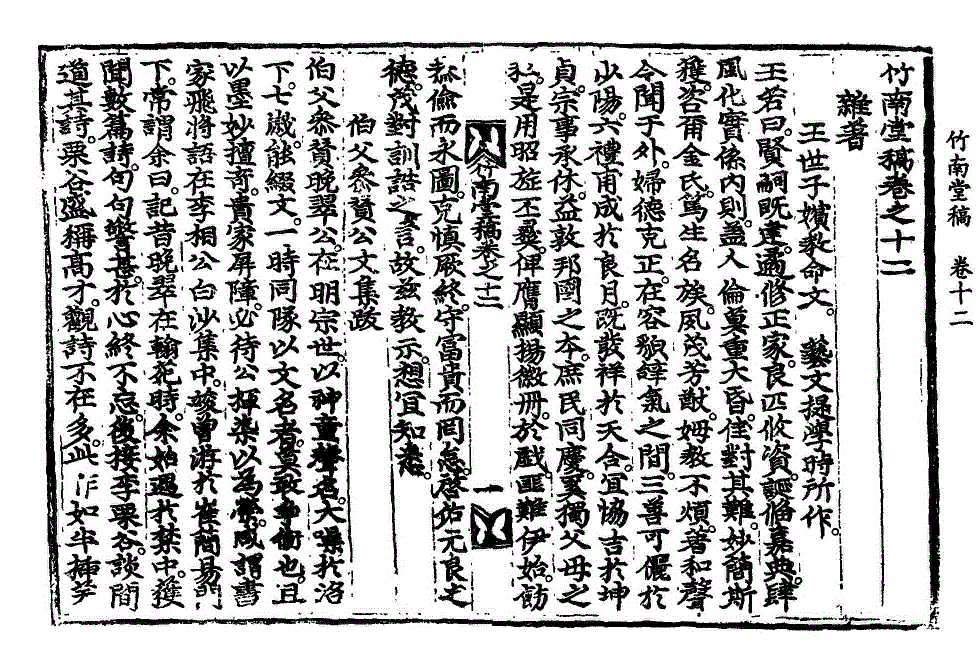 竹南堂稿　卷十二
竹南堂稿卷之十二
雜著
王世子嬪教命文。藝文提學時所作。
王若曰。賢嗣旣建。遹修正家。良匹攸資。誕脩嘉典。肆
風化實係內則。蓋人倫莫重大昏。佳對其難。妙簡斯
獲。咨爾金氏。篤生名族。夙茂芳猷。姆敎不煩。著和聲
令聞于外。婦德克正。在容貌辭氣之間。三善可儷於
少陽。六禮甫成於良月。旣發祥於天合。宜協吉於坤
貞。宗事承休。益敦邦國之本。庶民同慶。奚獨父母之
私。是用昭旌丕彝。俾膺顯揚徽冊。於戱。匪難伊始。飭
竹南堂稿卷之十二　一
恭儉而永圖。克愼厥終。守富貴而罔怠。啓佑元良之
德。茂對訓誥之言。故玆敎示。想宜知悉。
伯父參贊公文集跋
伯父參贊晩翠公。在明宗世。以神童聲名。大噪於洛
下。七歲。能綴文。一時同隊以文名者。莫敢爭衡也。且
以墨妙擅奇。貴家屛障。必待公揮染以爲榮。咸謂書
家飛將。語在李相公白沙集中。竣曾游於崔簡易門
下。常謂余曰。記昔晩翠在翰苑時。余始遇於禁中。獲
聞數篇詩。句句警甚。於心終不忘。後接李栗谷。談間
道其詩。栗谷盛稱高才。觀詩不在多。此作如牛揷